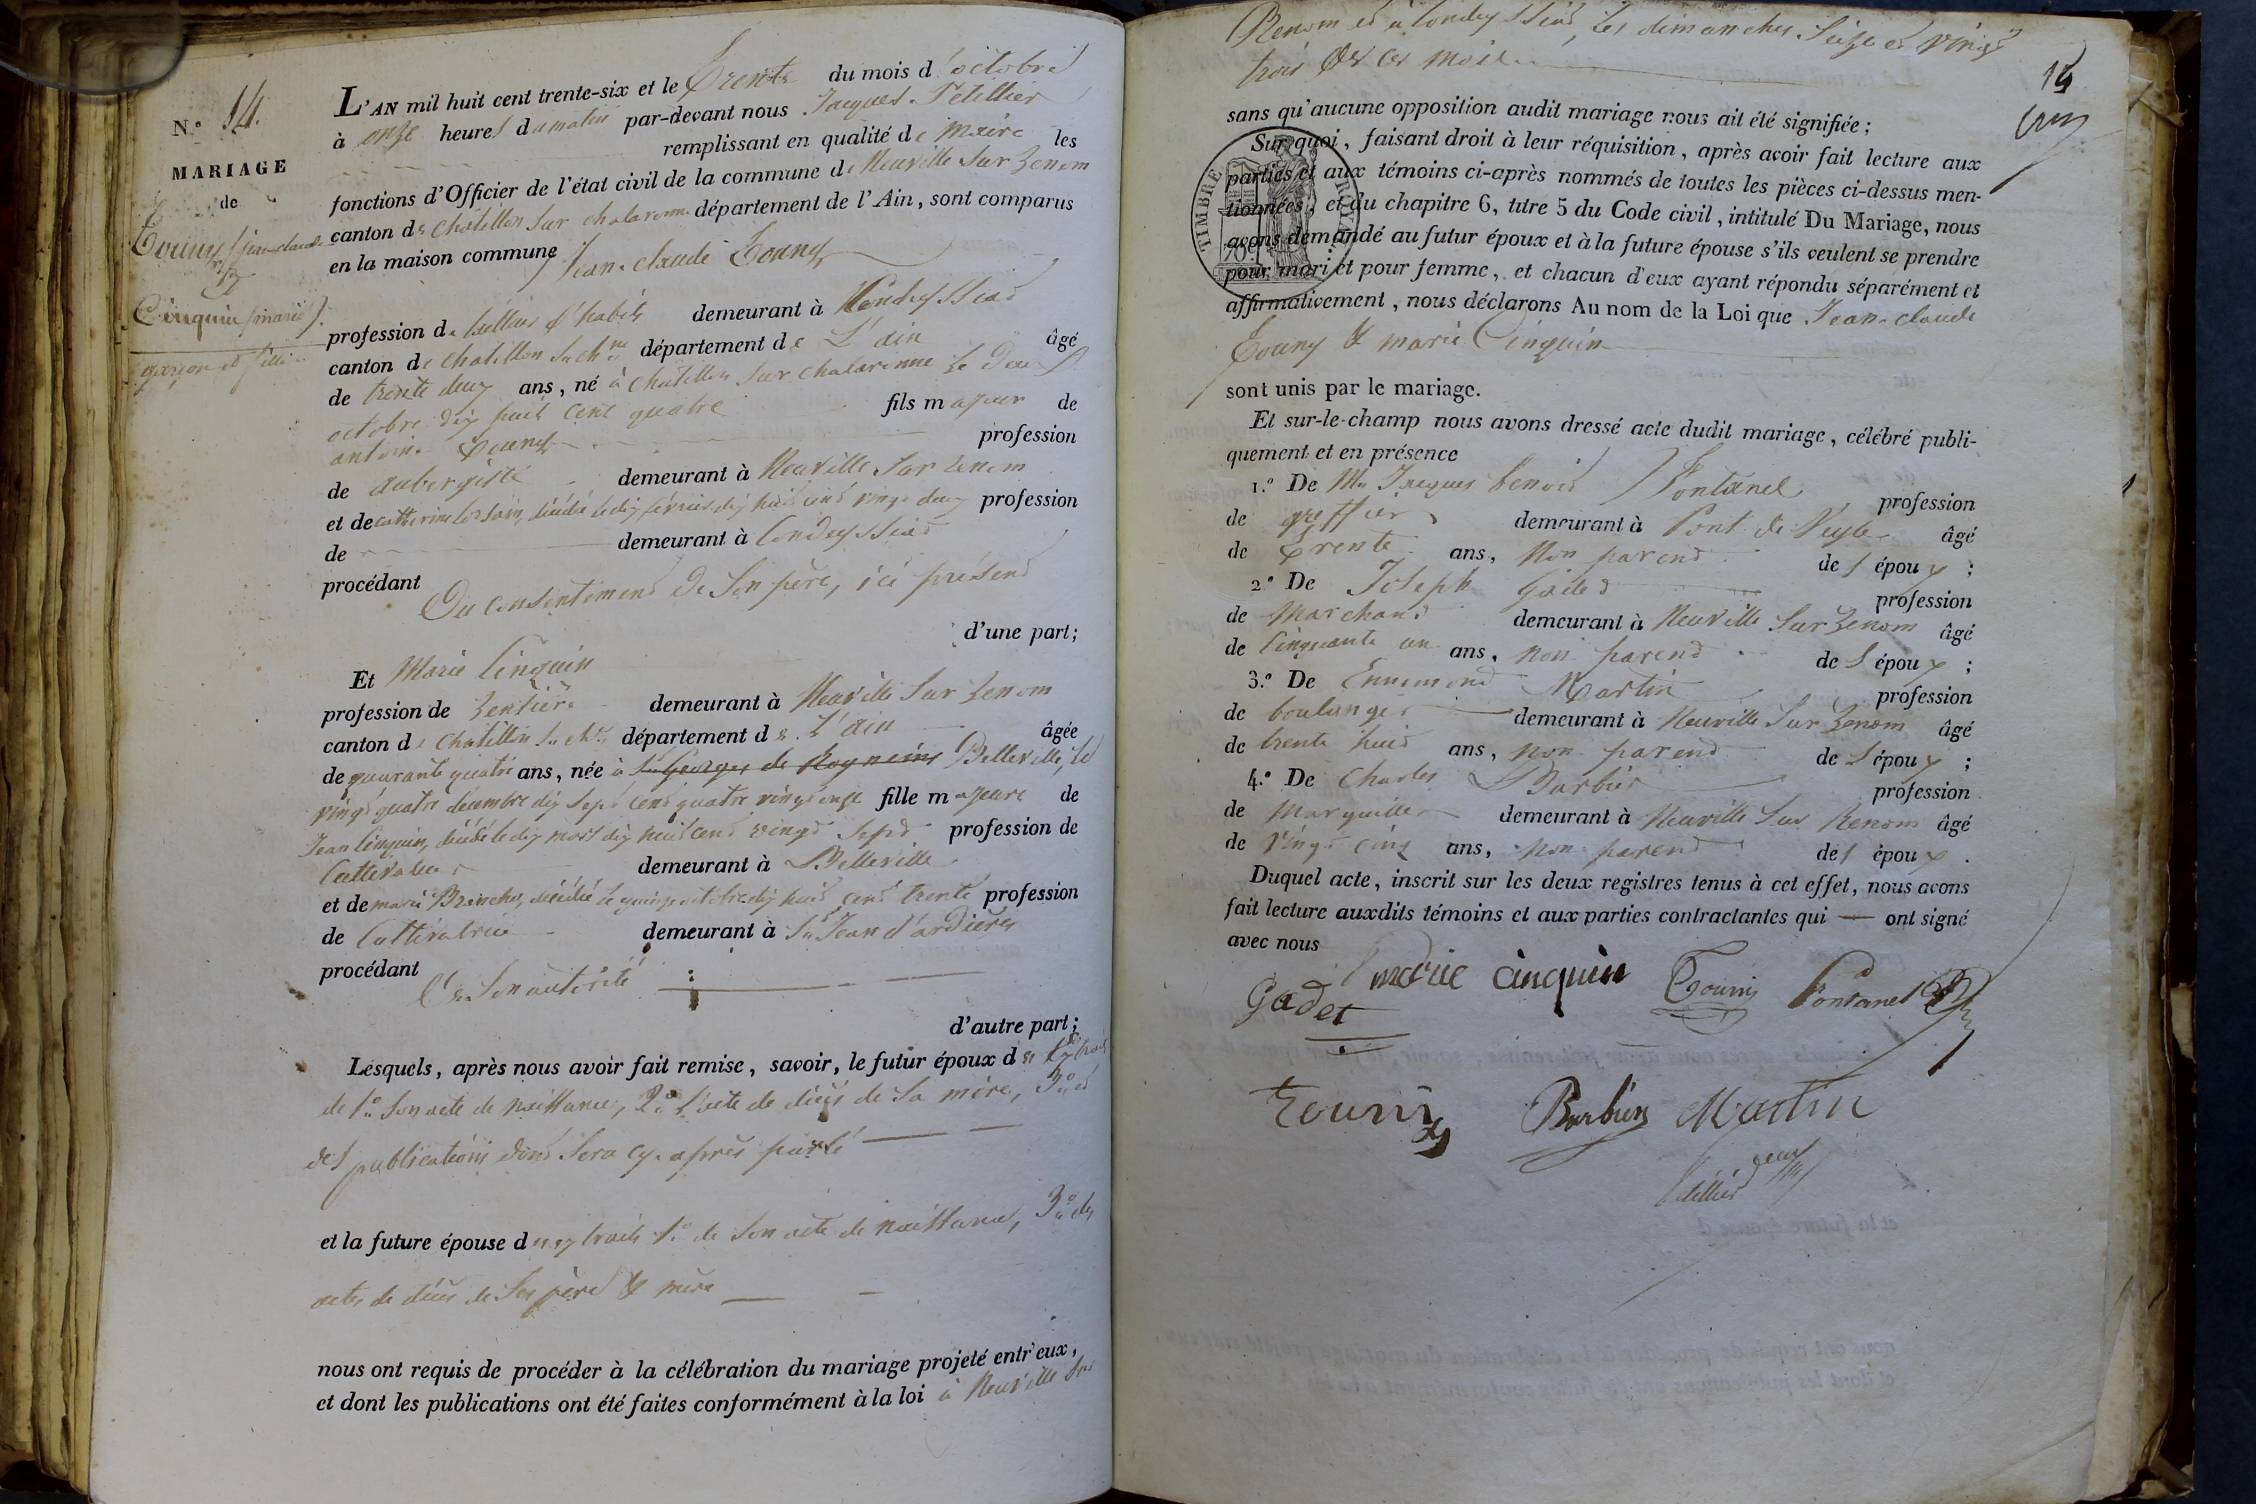 N.º 14.
MARIAGE
de
Touny (jean claude
Cinquin (marie)
garçon et fille
L'AN mil huit cent trente-six et le Trente du mois d'octobre
à onze heures du matin par-devant nous Jacques Tétillier
remplissant en qualité de maire les
fonctions d'Officier de l'état civil de la commune de Neuville sur Renom
canton de Chatillon sur chalaronne département de l'Ain, sont comparus
en la maison commune Jean-claude Touny
profession de tailleur d'habits demeurant à Condeyssiad
canton de Chatillon S. Chne département de L'ain âgé
de trente deux ans, né à Chatillon sur chalaronne le deux
octobre dix huit cent quatre fils majeur de
antoine Touny profession
de aubergiste demeurant à Neuville sur Renom
et de catherine décédée le dix février dix huit cent vingt deux profession
de demeurant à Condeyssiad
procédant Du consentement de son père, ici présent
d'une part;
Et Marie Cinquin
profession de Rentière demeurant à Neuville sur Renom
canton de Chatillon S. Ch. département de L'ain âgée
de quarante quatre ans, née à St Georges de Rogneins Belleville, le
vingt quatre décembre dix sept cent quatre vingt onze fille majeure de
Jean Cinquin, décédé le dix mars dix huit cent vingt sept profession de
Cultivateur demeurant à Belleville
et de marie Branche, décédée le quinze octobre dix huit cent trente profession
de Cultivatrice demeurant à St Jean d'ardières
procédant De son autorité
d'autre part;
Lesquels, après nous avoir fait remise, savoir, le futur époux des Extraits
de 1.º son acte de naissance, 2.º l'acte de décès de sa mère, 3.º et
des publications dont sera cy-après parlé
et la future épouse d'extraits 1.º de son acte de naissance, 3.º des
actes de décès de ses père & mère
nous ont requis de procéder à la célébration du mariage projeté entr'eux,
et dont les publications ont été faites conformément à la loi à Neuville sur
Renom et à Condeyssiad, les dimanches seize et vingt
trois de ce mois
15
sans qu'aucune opposition audit mariage nous ait été signifiée;
Sur quoi, faisant droit à leur réquisition, après avoir fait lecture aux
parties et aux témoins ci-après nommés de toutes les pièces ci-dessus men-
tionnées, et du chapitre 6, titre 5 du Code civil, intitulé Du Mariage, nous
avons demandé au futur époux et à la future épouse s'ils veulent se prendre
pour mari et pour femme, et chacun d'eux ayant répondu séparément et
affirmativement, nous déclarons Au nom de la Loi que Jean-claude
Touny & marie Cinquin
TIMBRE ROYAL
70 c
sont unis par le mariage.
Et sur-le-champ nous avons dressé acte dudit mariage, célébré publi-
quement et en présence
1.º De Mr Jacques benoid Fontanel profession
de greffier demeurant à Pont de Veyle âgé
de Trente ans, Non parend de l'époux ;
2.º De Joseph Gaded profession
de Marchand demeurant à Neuville sur Renom âgé
de Cinquante un ans, non parend de l'époux ;
3.º De Ennemond Martin profession
de boulanger demeurant à Neuville sur Renom âgé
de trente huit ans, non parend de l'époux ;
4.º De Charles Barbier profession
de Marguiller demeurant à Neuville sur Renom âgé
de Vingt cinq ans, non parend de l'époux .
Duquel acte, inscrit sur les deux registres tenus à cet effet, nous avons
fait lecture auxdits témoins et aux parties contractantes qui ont signé
avec nous
Gadet marie cinquin Touny Fontanel
Touny Barbier Martin
Tétillier